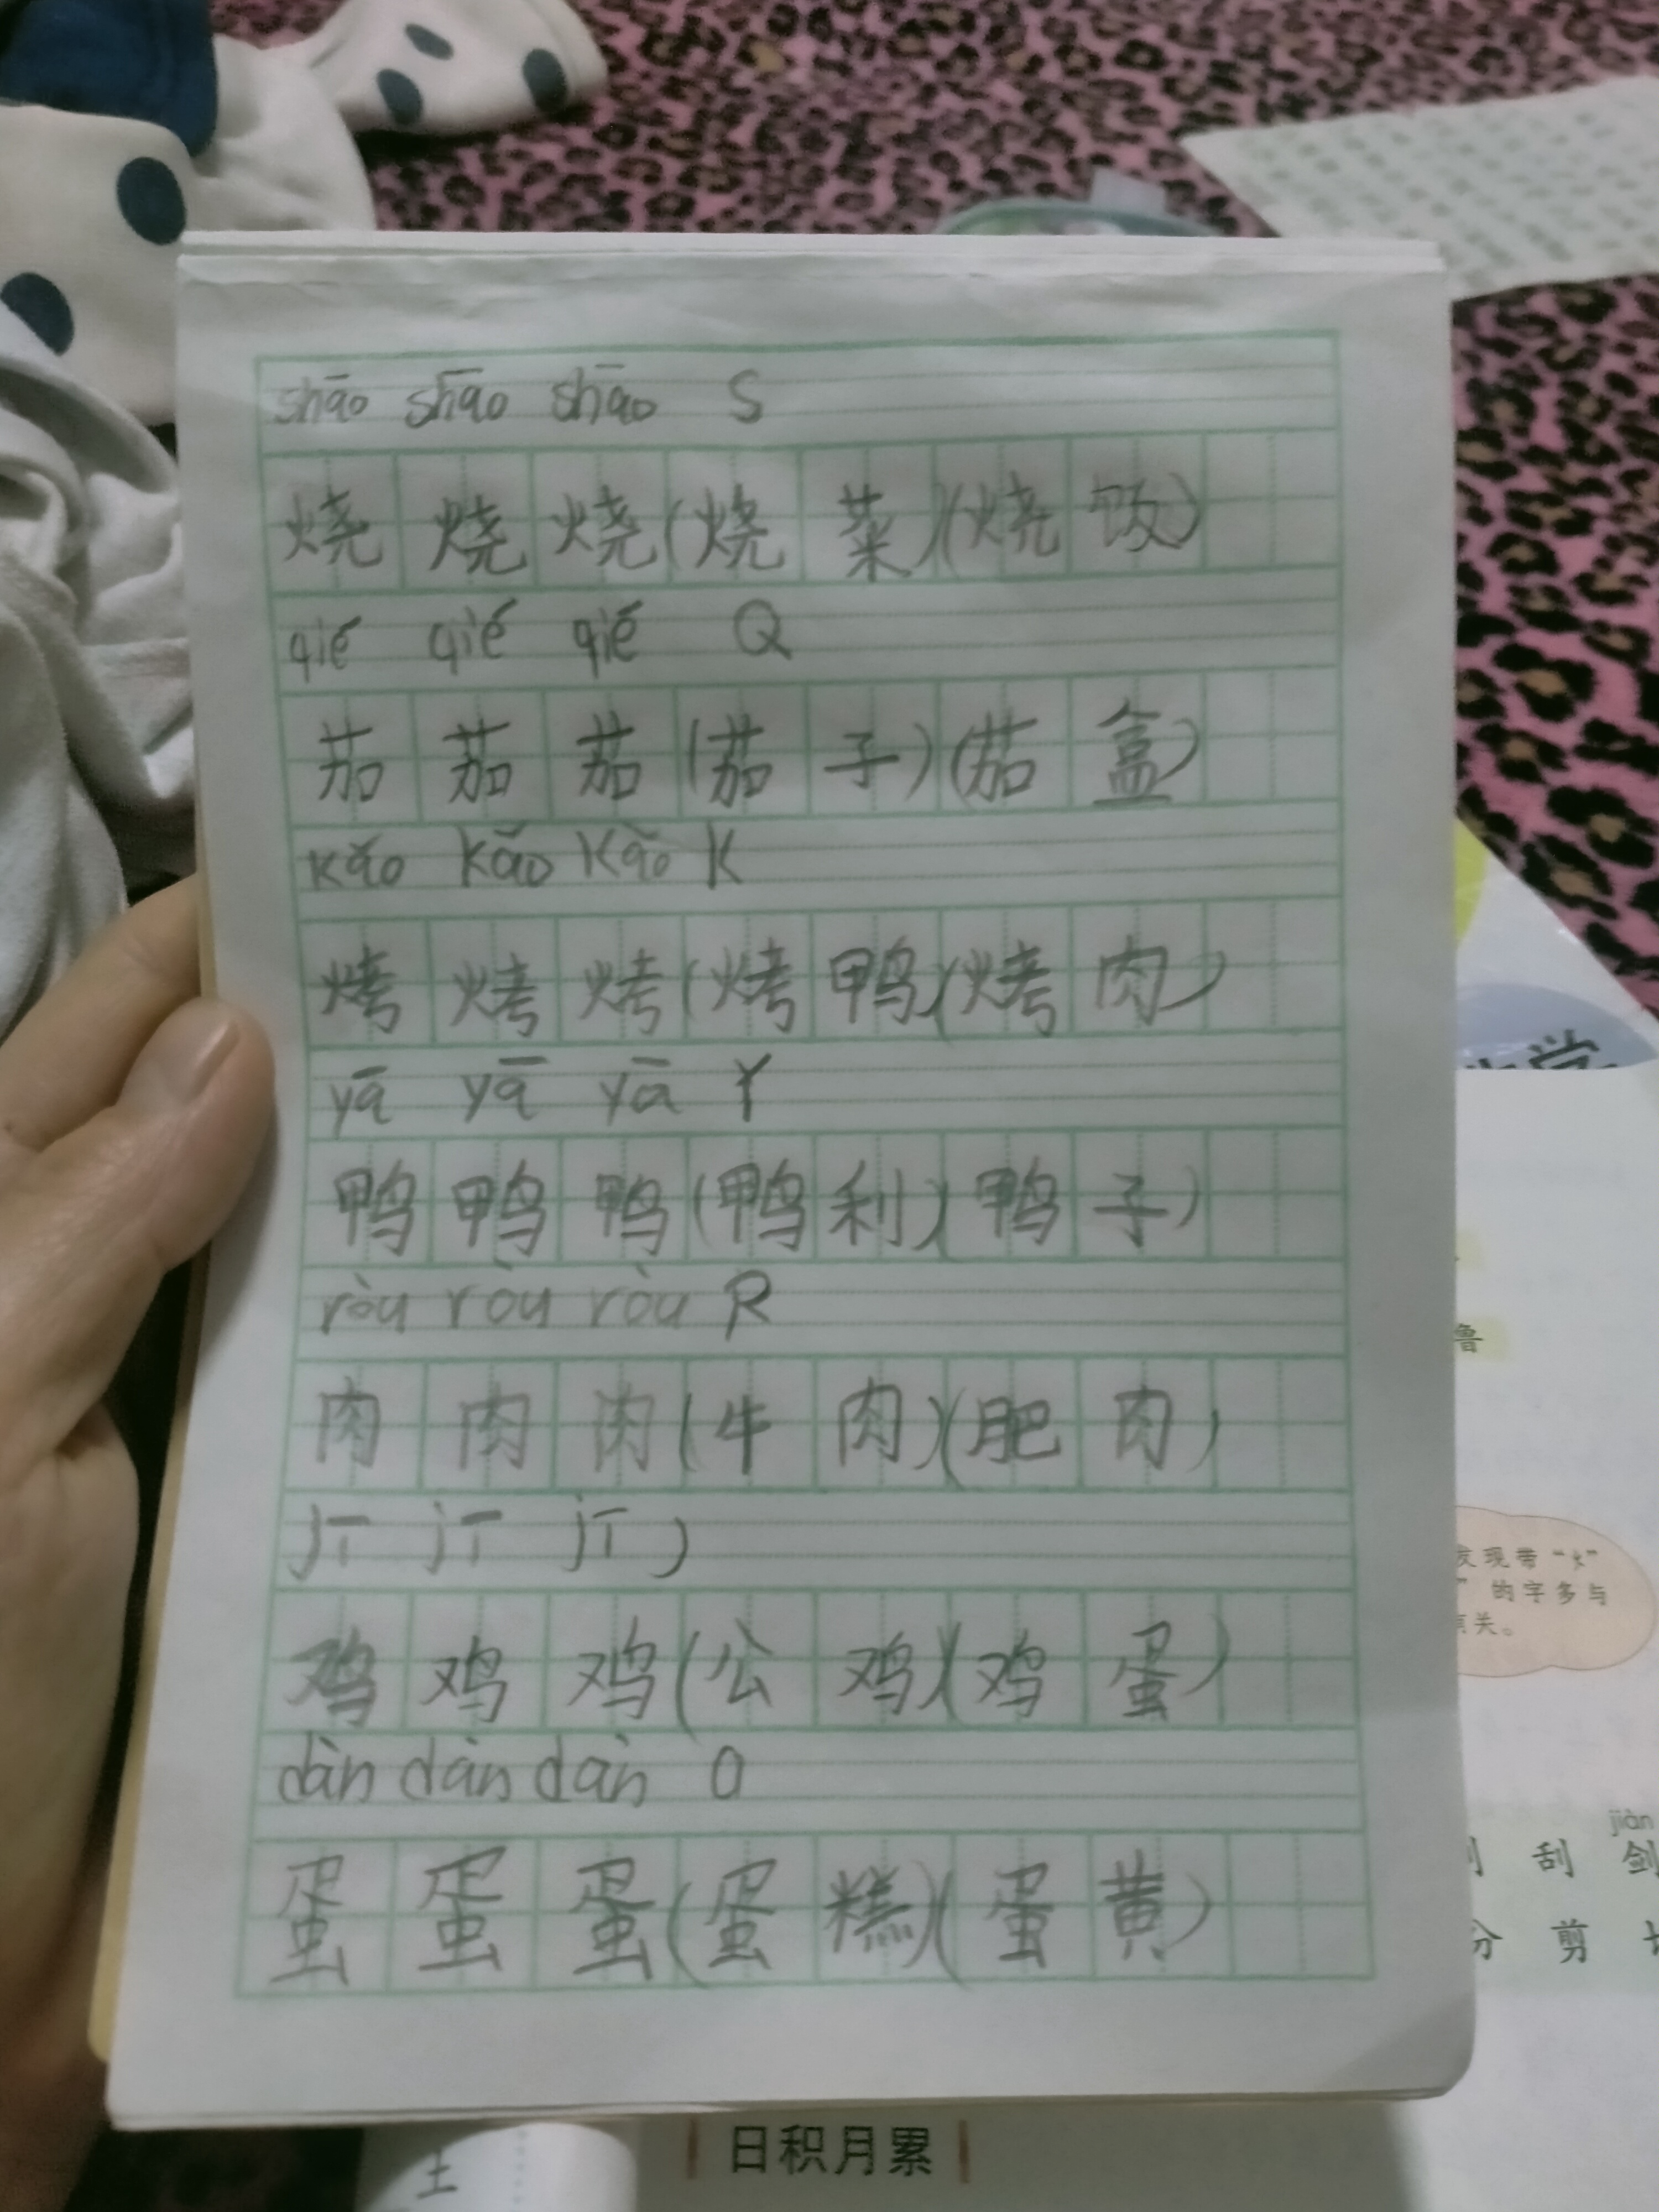 shāo shāo shāo S
烧烧烧(烧菜)(烧饭)
qié qié qié Q
茄茄茄(茄子)(茄盒)
kǎo kǎo kǎo K
烤烤烤(烤鸭)(烤肉)
yā yā yā Y
鸭鸭鸭(鸭利)(鸭子)
ròu ròu ròu R
肉肉肉(牛肉)(肥肉)
jī jī jī J
鸡鸡鸡(公鸡)(鸡蛋)
dàn dàn dàn D
蛋蛋蛋(蛋糕)(蛋黄)
学
鲁
发现带“火”
”的字多与
有关。
jiàn
刮 剑
分 剪
日积月累